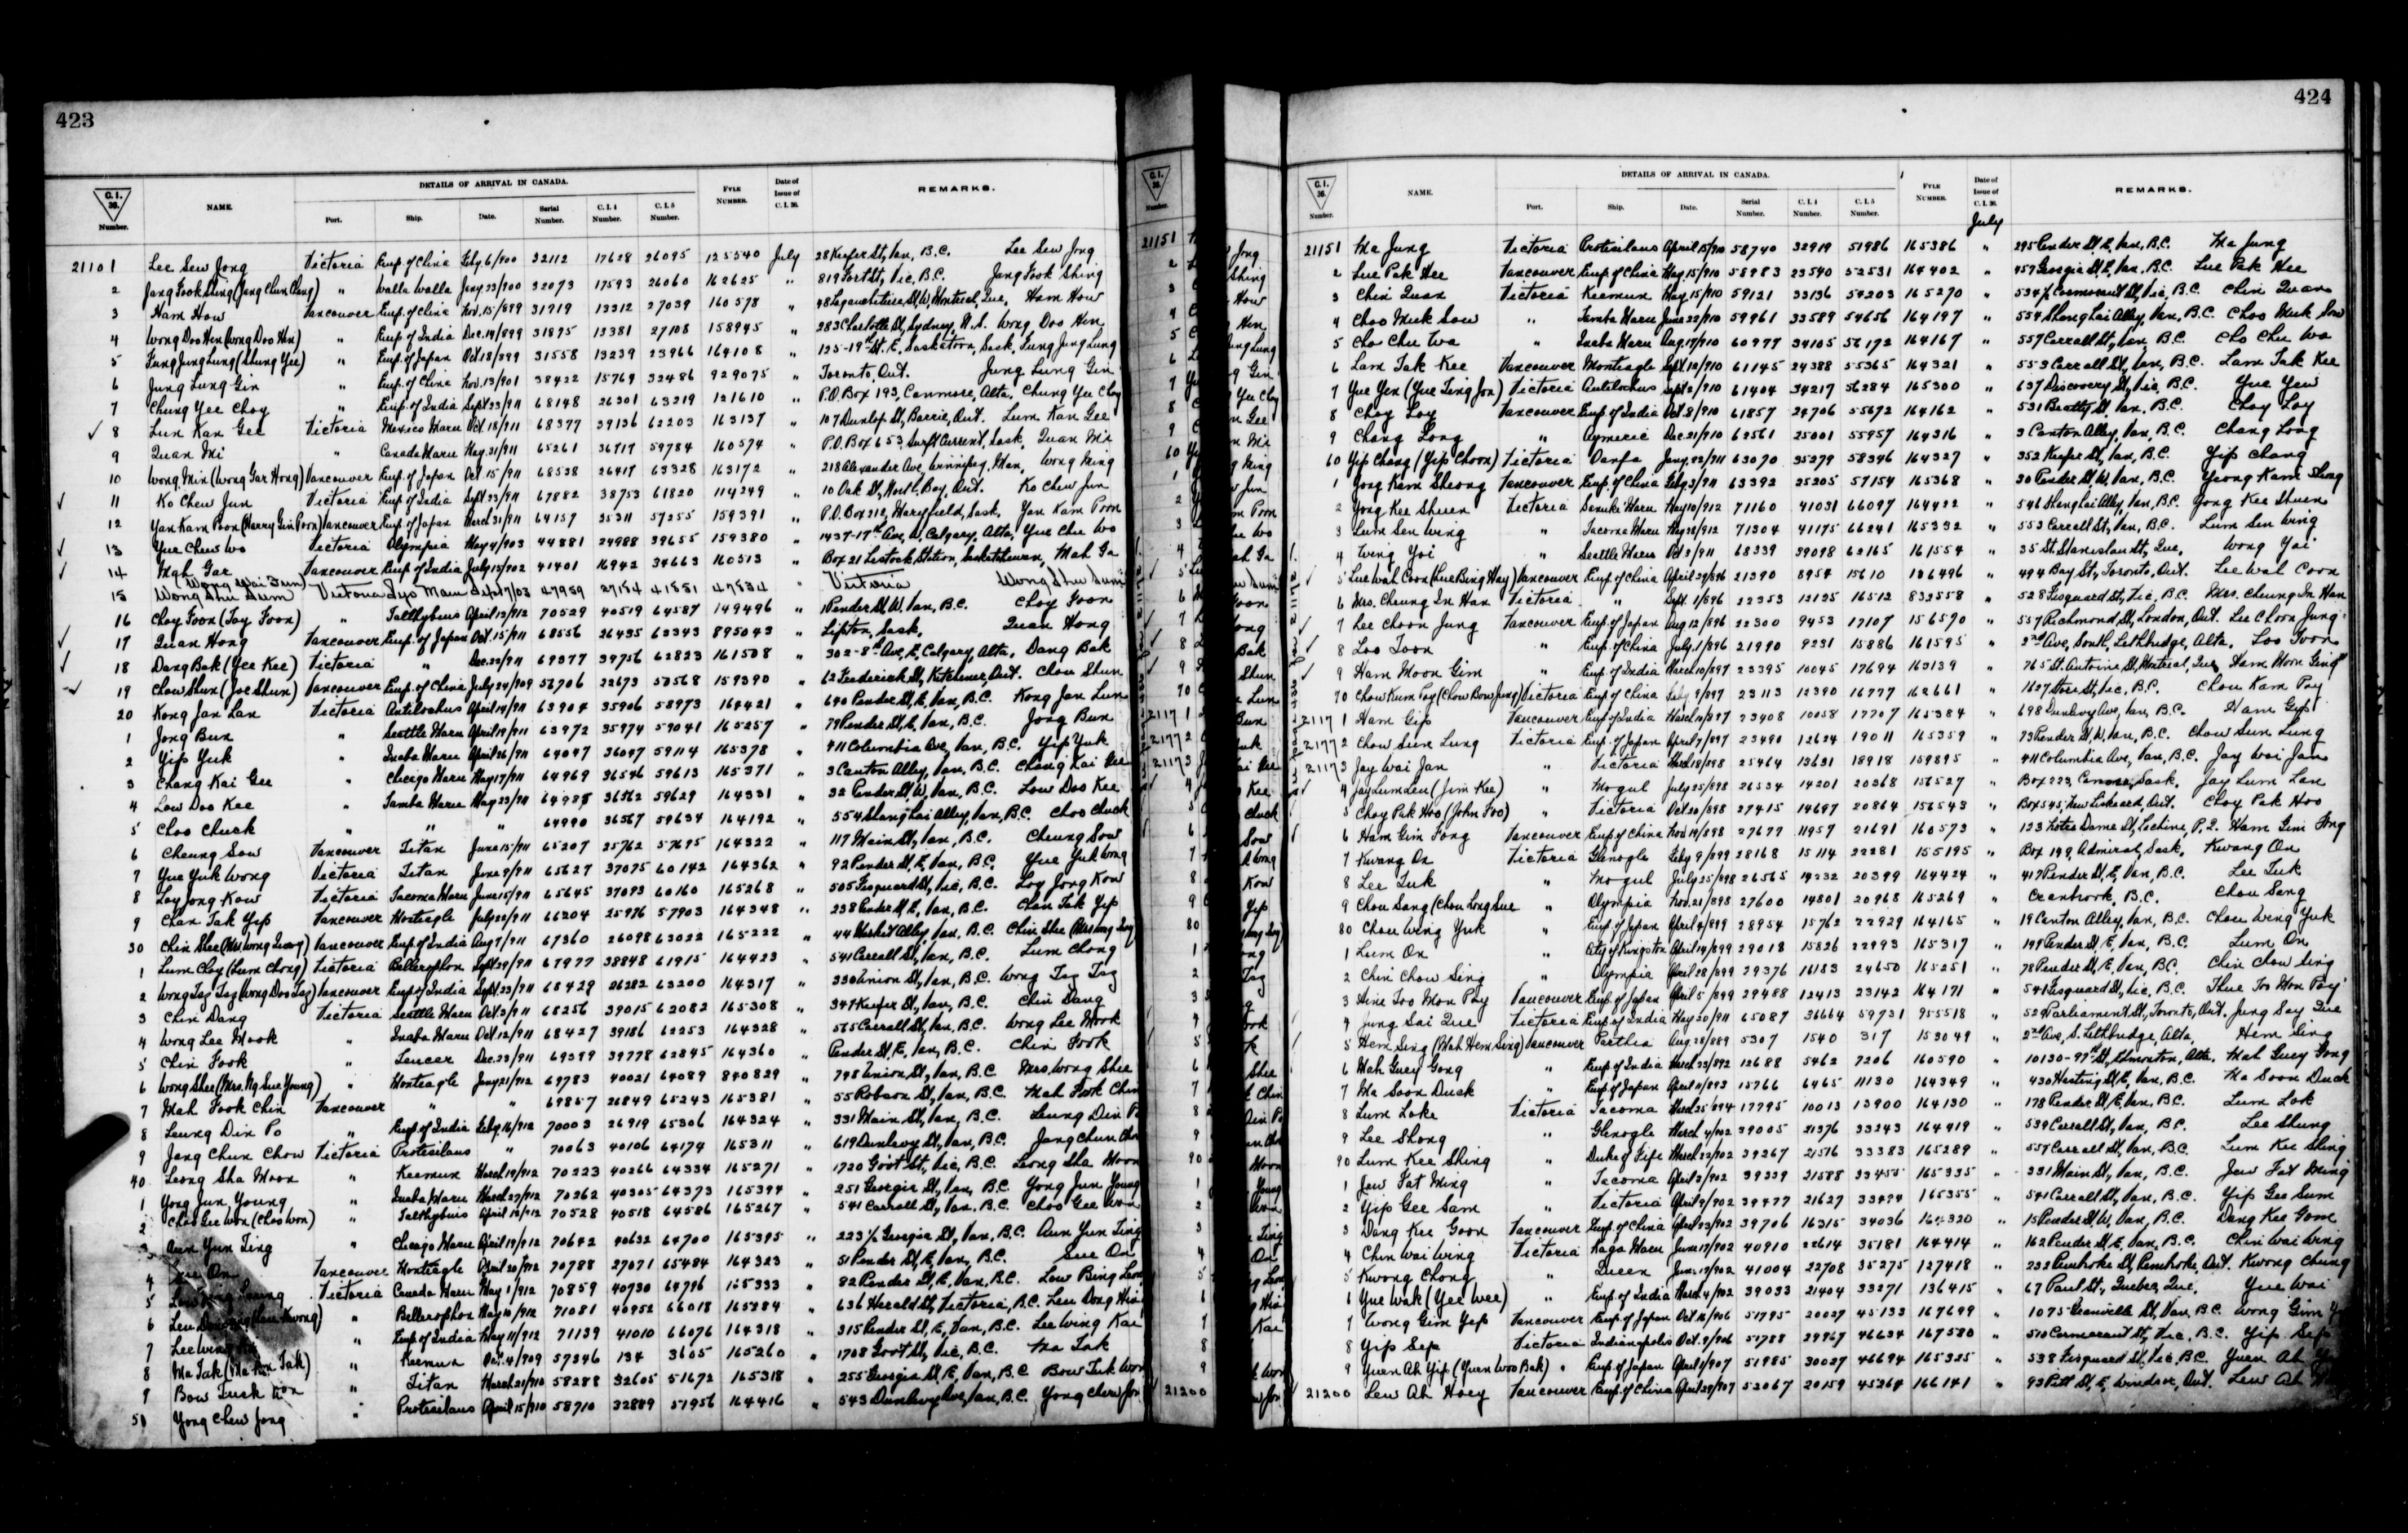 423
DETAILS OF ARRIVAL IN CANADA.
C.I. 36. Number. NAME. Port. Ship. Date. Serial Number. C.I. 4 Number. C.I. 5 Number. FYLE NUMBER. Date of Issue of C.I. 36. REMARKS.
21101 Lee Sew Jong Victoria Emp. of China Feby. 6/900 32112 17628 26095 125540 July 28 Keefer St, Van, B.C. Lee Sew Jong
2 Jang Fook Shing (Jang Chun Chong) " Walla Walla Jany 23/900 32073 17593 26060 162625 " 819 Fort St, Vic, B.C. Jang Fook Shing
3 Ham How Vancouver Emp. of China Nov. 15/899 31919 13312 27039 160578 " 48 Lagauchetiere St, W, Montreal, Que, Ham How
4 Wong Doo Hen (Wong Doo Hin) " Emp. of India Dec. 14/899 31895 13381 27108 158945 " 283 Charlotte St, Sydney, N.S. Wong Doo Hen
5 Fung Jung Lung (Shung Yee) " Emp. of Japan Oct 18/899 31558 13239 23966 164108 " 125-19th St. E, Saskatoon, Sask, Fung Jung Lung
6 Jung Lung Gin " Emp. of China Nov. 13/901 38422 15769 32486 929075 " Toronto, Ont. Jung Lung Gin
7 Chung Yee Choy " Emp. of India Sept 23/911 68148 26301 63219 121610 " P.O. Box 193, Canmore, Alta, Chung Yee Choy
8 Lum Kan Gee Victoria Mexico Maru Oct. 18/911 68377 39136 62203 163137 " 107 Dunlop St, Barrie, Ont. Lum Kan Gee
9 Quan Mi " Canada Maru May. 31/911 65261 36717 59784 160574 " P.O. Box 653, Swift Current, Sask, Quan Mi
10 Wong Min (Wong Gar Hong) Vancouver Emp. of Japan Oct. 15/911 68528 26417 63328 163172 " 218 Alexander Ave, Winnipeg, Man, Wong Ming
11 Ko Chew Jun Victoria Emp. of India Sept 23/911 67882 38753 61820 114249 " 10 Oak St, North Bay, Ont. Ko Chew Jun
12 Yan Kam Poon (Harry Gin Poon) Vancouver Emp. of Japan March 31/911 64157 25311 57255 159391 " P.O. Box 212, Maryfield, Sask, Yan Kam Poon
13 Yue Chew Wo Victoria Olympia May 4/903 44881 24988 39655 159380 " 1437-17th Ave, W, Calgary, Alta, Yue Chu Wo
14 Mah Gar Vancouver Emp. of India July 15/902 41401 16942 34663 160513 " Box 21 Lestock Station, Saskatchewan, Mah Ga
15 Wong Shu Sum (Wong Wai Sun) Victoria Lyo Maru Sept 17/03 47959 27154 41551 47534 " Victoria Wong Shu Sum
16 Choy Foon (Toy Foon) " Talthybius April 13/912 70529 40519 64587 149496 " 1 Pender St, W. Van, B.C. Choy Foon
17 Quan Hong Vancouver Emp. of Japan Oct. 15/911 68556 26435 63343 895043 " Lipton, Sask, Quan Hong
18 Dang Bak (Yee Kee) Victoria " Dec. 22/911 69377 39756 62823 161508 " 302-8th Ave, E, Calgary, Alta, Dang Bak
19 Chow Shun (Joe Shun) Vancouver Emp. of China July 24/909 56706 22673 50568 159390 " 62 Frederick St, Kitchener, Ont. Chow Shun
20 Kong Jan Lan Victoria Antilochus April 14/911 63904 35906 58973 164421 " 690 Pender St, E, Van, B.C. Kong Jan Lun
1 Jong Bun " Seattle Maru April 19/911 63972 35974 59041 165257 " 79 Pender St, E, Van, B.C. Jong Bun
2 Yip Yuk " Inaba Maru April 26/911 64047 36047 59114 165378 " 411 Columbia Ave, Van, B.C. Yip Yuk
3 Chang Kai Gee " Chicago Maru May 17/911 64969 36546 59613 165371 " 3 Canton Alley, Van, B.C. Chang Kai Gee
4 Low Doo Kee " Tamba Maru May 23/911 64985 36562 59629 164331 " 32 Pender St, W, Van, B.C. Low Doo Kee
5 Choo Chuck " " " 64990 36567 59634 164192 " 554 Shanghai Alley, Van, B.C. Choo Chuck
6 Cheung Sow Vancouver Titan June 15/911 65207 25762 57695 164322 " 117 Main St, Van, B.C. Cheung Sow
7 Yue Yuk Wong Victoria Titan June 9/911 65627 37075 60142 164362 " 92 Pender St, E, Van, B.C. Yue Yuk Wong
8 Loy Jong Kow Victoria Tacoma Maru June 15/911 65645 37093 60160 165268 " 505 Fisguard St, Vic, B.C. Loy Jong Kow
9 Chan Tak Yip Vancouver Monteagle July 22/911 66204 25976 57903 164348 " 238 Pender St, E, Van, B.C. Chan Tak Yip
30 Chin Shee (Mrs Wong Quong) Vancouver Emp. of India Aug 7/911 67360 26098 63022 165222 " 44 Market Alley Van, B.C. Chin Shee
1 Lum Choy (Lum Chong) Victoria Bellerophon Sept 29/911 67977 38848 61915 164423 " 541 Carrall St, Van, B.C. Lum Chong
2 Wong Tag Tag (Wong Doo Tag) Vancouver Emp. of India Sept. 23/911 68429 26282 63200 164317 " 330 Union St, Van, B.C. Wong Tag Tag
3 Chin Dang Victoria Seattle Maru Oct. 3/911 68256 39015 62082 165308 " 347 Keefer St, Van, B.C. Chin Dang
4 Wong Lee Mook " Inaba Maru Oct. 12/911 68427 39186 62253 164328 " 565 Carrall St, Van, B.C. Wong Lee Mook
5 Chin Fook " Teucer Dec. 23/911 69399 39778 62845 164360 " Pender St, E, Van, B.C. Chin Fook
6 Wong Shee (Mrs. Ng Sue Young) " Monteagle Jany 21/912 69783 40021 64089 840829 " 798 Union St, Van, B.C. Mrs. Wong Shee
7 Mah Fook Chin Vancouver " " 69857 26849 65243 165381 " 55 Robson St, Van, B.C. Mah Fook Chin
8 Leung Din Po " Emp. of India Feby. 16/912 70003 26919 65306 164324 " 331 Main St, Van, B.C. Leung Din Po
9 Jang Chun Chow Victoria Protesilaus " 70063 40106 64174 165311 " 619 Dunlevy St, Van, B.C. Jang Chun
40 Leong Sha Moon " Keemun March 19/912 70223 40266 64334 165271 " 1720 Gov't St, Vic, B.C. Leong Sha Moon
1 Yong Jun Young " Inaba Maru March 27/912 70262 40305 64373 165394 " 251 Georgia St, Van, B.C. Yong Jun Young
2 Choo Gee Won (Choo Won) " Talthybius April 13/912 70528 40518 64586 165267 " 541 Carrall St, Van, B.C. Choo Gee Won
3 Aun Yun Ting " Chicago Maru April 19/912 70642 40632 64700 165395 " 223½ Georgia St, Van, B.C. Aun Yun Ting
4 Sue On Vancouver Monteagle April 20/912 70788 27071 65484 164323 " 51 Pender St, E, Van, B.C. Sue On
5 Victoria Canada Maru May 1/912 70859 40730 64796 165333 " 82 Pender St, E, Van, B.C. Low Bing Leong
6 " Bellerophon May 10/912 71081 40952 66018 165284 " 636 Herald St, Victoria, B.C. Leu Dong
7 Lee Wing " Emp. of India May 11/912 71139 41010 66076 164318 " 315 Pender St, E, Van, B.C. Lee Wing Kae
8 Ma Tak " Keemun Oct. 4/909 57346 134 3605 165260 " 1708 Gov't St, Vic, B.C. Ma Tak
9 Bow Tuck Won " Titan March 21/910 58288 32605 51672 165318 " 255 Georgia St, E, Van, B.C. Bow Tuk Won
50 Yong Chew Jong " Protesilaus April 15/910 58710 32889 51956 164416 " 543 Dunlevy Ave, Van, B.C. Yong Chew Jon
424
DETAILS OF ARRIVAL IN CANADA.
C.I. 36. Number. NAME. Port. Ship. Date. Serial Number. C.I. 4 Number. C.I. 5 Number. FYLE NUMBER. Date of Issue of C.I. 36. REMARKS.
July
21151 Ma Jung Victoria Protesilaus April 15/910 58740 32919 51986 165386 " 295 Pender St, E, Van, B.C. Ma Jung
2 Lue Pak Hee Vancouver Emp. of China May. 15/910 58983 23540 52531 164402 " 457 Georgia St, E, Van, B.C. Lue Pak Hee
3 Chin Quan Victoria Keemun May. 15/910 59121 33136 54203 165270 " 534½ Cormorant St, Vic, B.C. Chin Quan
4 Choo Muk Sow " Tamba Maru June 22/910 59961 33589 54656 164197 " 554 Shanghai Alley, Van, B.C. Choo Muk Sow
5 Cho Chu Wa " Inaba Maru Aug. 17/910 60977 34105 56172 164167 " 557 Carrall St, Van, B.C. Cho Chu Wa
6 Lam Tak Kee Vancouver Monteagle Sept. 12/910 61145 24388 55365 164321 " 553 Carrall St, Van, B.C. Lam Tak Kee
7 Yue Yen (Yue Ting Jon) Victoria Antilochus Sept 3/910 61404 34217 56284 165300 " 637 Discovery St, Vic, B.C. Yue Yew
8 Choy Loy Vancouver Emp. of India Oct. 8/910 61857 24706 55672 164162 " 531 Beatty St, Van, B.C. Choy Loy
9 Chang Long " Aymeric Dec. 21/910 62561 25001 55957 164316 " 3 Canton Alley, Van, B.C. Chang Long
60 Yip Chang (Yip Choon) Victoria Oanfa Jany. 22/911 63070 35279 58346 164327 " 352 Keefer St, Van, B.C. Yip Chang
1 Jong Kam Sheong Vancouver Emp. of China Feby 3/911 63392 25205 57154 165368 " 20 Pender St, W, Van, B.C. Yeong Kam Sheng
2 Jong Kee Shuen Victoria Sanuki Maru May 10/912 71160 41031 66097 164422 " 546 Shanghai Alley, Van, B.C. Jong Kee Shuen
3 Lum Sen Wing " Tacoma Maru May 28/912 71304 41175 66241 165332 " 553 Carrall St, Van, B.C. Lum Sen Wing
4 Wong Yoi " Seattle Maru Oct. 3/911 68339 39098 62165 161554 " 35 St. Stanislas St, Que, Wong Yai
5 Lue Wah Coon (Lue Bing Hay) Vancouver Emp. of China April 29/896 21390 8954 15610 126496 " 494 Bay St, Toronto, Ont. Lee Wah Coon
6 Mrs. Cheung In Han Victoria " Sept. 1/896 22353 12125 16512 832558 " 528 Fisguard St, Vic, B.C. Mrs. Cheung In Han
7 Lee Choon Jung Vancouver Emp. of Japan Aug. 12/896 22300 9453 17107 156570 " 557 Richmond St, London, Ont. Lee Choon Jung
8 Loo Toon " Emp. of China July. 1/896 21990 9231 15886 161595 " 2nd Ave, South, Lethbridge, Alta, Loo Toon
9 Ham Moon Gim " Emp. of India March 10/897 23395 10045 17694 163139 " 765 St. Antoine St, Montreal, Que, Ham Moon Gim
70 Chow Kum Poy (Chow Bow Jung) Victoria Emp. of China Feby 9/897 23113 12390 16777 162661 " 1627 Store St, Vic, B.C. Chow Kam Poy
21171 Ham Gip Vancouver Emp. of India March 10/897 23408 10058 17707 165384 " 698 Dunlevy Ave, Van, B.C. Ham Gip
21172 Chow Sun Lung Victoria Emp. of Japan April 7/897 23490 12624 19011 165359 " 73 Pender St, W, Van, B.C. Chow Sun Lung
21173 Jay Wai Jan " Victoria March 18/898 25464 13631 18918 159895 " 411 Columbia Ave, Van, B.C. Jay Wai Jan
4 Jay Lum Len (Jim Kee) " Mogul July 25/898 26534 14201 20368 156527 " Box 223, Sask, Jay Lum Lan
5 Choy Pak Hoo (John Foo) " Victoria Oct. 20/898 27415 14697 20864 156543 " Box 545, New Liskeard, Ont. Choy Pak Hoo
6 Ham Gim Fong Vancouver Emp. of China Nov. 14/898 27677 11957 21691 160573 " 123 Notre Dame St, Lachine, P.Q. Ham Gim Fong
7 Kwong On Victoria Glenogle Feby 9/899 28168 15114 22281 155195 " Box 199, Admiral, Sask, Kwong On
8 Lee Tuk " Mogul July 25/898 26565 14232 20399 164424 " 417 Pender St, E, Van, B.C. Lee Tuk
9 Chow Sang (Chow Long Sue " Olympia Nov. 21/898 27600 14801 20968 165269 " Cranbrook, B.C. Chow Sang
80 Chow Wing Yuk " Emp. of Japan April 4/899 28954 15762 22929 164165 " 19 Canton Alley, Van, B.C. Chow Wing Yuk
1 Lum On " City of Kingston April 14/899 29018 15826 22993 165317 " 199 Pender St, E, Van, B.C. Lum On
2 Chin Chow Sing " Olympia April 28/899 29376 16183 24650 165251 " 78 Pender St, E, Van, B.C. Chin Chow Sing
3 Hine Too Mon Poy Vancouver Emp. of Japan April 5/899 29488 12413 23142 164171 " 541 Fisguard St, Vic, B.C. Thue Too Mon Poy
4 Jung Sai Que Victoria Emp. of India May 20/911 65087 36664 59731 955518 " 529 Parliament St, Toronto, Ont. Jung Say Que
5 Hem Sing (Mah Hem Sing) Vancouver Parthia Aug. 28/889 5307 1540 317 153049 " 2nd Ave, S. Lethbridge, Alta, Hem Sing
6 Mah Guey Gong " Emp. of India March 23/892 12688 5462 7206 160590 " 10130-97th St, Edmonton, Alta, Mah Guey Gong
7 Ma Soon Duck " Emp. of Japan April 11/893 15766 6465 11130 164349 " 430 Hasting St, E, Van, B.C. Ma Soon Duck
8 Lum Loke Victoria Tacoma March 25/894 17795 10013 13900 164130 " 178 Pender St, E, Van, B.C. Lum Lok
9 Lee Shong " Glenogle March 4/902 39005 21376 33243 164419 " 539 Carrall St, Van, B.C. Lee Shung
90 Lum Kee Shing " Duke of Fife March 22/902 39267 21516 33383 165289 " 557 Carrall St, Van, B.C. Lum Kee Shing
1 Jew Fat Ming " Tacoma April 3/902 39339 21588 33455 165335 " 331 Main St, Van, B.C. Jew Fat Ming
2 Yip Gee Sam " Victoria April 9/902 39477 21627 33494 165355 " 541 Carrall St, Van, B.C. Yip Gee Sum
3 Dang Kee Goon Vancouver Emp. of China April 23/902 39706 16315 34036 164320 " 15 Pender St, W, Van, B.C. Dang Kee Gom
4 Chin Wai Wing Victoria Kaga Maru June 17/902 40910 22614 35181 164414 " 162 Pender St, E, Van, B.C. Chin Wai Wing
5 Kwong Chong " Queen June 19/902 41004 22708 35275 127418 " 232 Pembroke St, Pembroke, Ont. Kwong Chung
6 Yue Wak (Yee Wee) " Emp. of India March 4/902 39033 21404 33271 136415 " 67 Paul St, Quebec, Que, Yue Wai
7 Wong Gim Yep Vancouver Emp. of Japan Oct. 16/906 51795 20027 45133 167699 " 1075 Granville St, Van, B.C. Wong Gim
8 Yip Sep Victoria Indianapolis Oct. 9/906 51788 29967 46634 167580 " 510 Cormorant St, Vic, B.C. Yip Sep
9 Yuen Ah Yip (Yuen Woo Bak) " Emp. of Japan April 1/907 51985 30027 46694 165325 " 538 Fisguard St, Vic, B.C. Yuen Ah
21200 Lew Ah Hoey Vancouver Emp. of China April 29/907 52067 20159 45264 166141 " 93 Pitt St, E, Windsor, Ont. Lew Ah